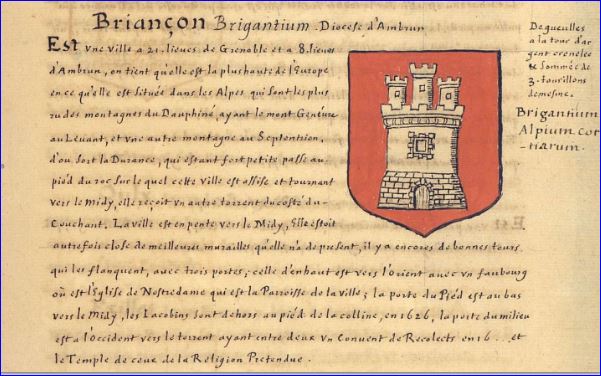 Briançon Brigantium. Diocese d'Ambrun
Est vne ville a 21. lieues de Grenoble et a 8. lieues
d'Ambrun, on tient qu'elle est la plus haute de l'Europe
en ce qu'elle est située dans les Alpes qui sont les plus
rudes montagnes du Dauphiné, ayant le mont Genéure
au Leuant, et vne autre montagne au Septentrion,
d'ou sort la Durance, qui estant fort petite passe au
pied du roc sur lequel cette ville est assise et tournant
vers le Midy, elle reçoit vn autre torrent du costé du
Couchant. La ville est en pente vers le Midy, Elle estoit
autrefois close de meilleures murailles qu'elle n'a de present, il y a encores de bonnes tours
qui les flanquent, avec trois portes; celle d'enhaut est vers l'Orient avec vn faubourg
où est l'Eglise de Nostredame qui est la Parroisse de la ville; la porte du Pied est au bas
vers le Midy, les Iacobins sont dehors au pied de la colline, en 1626, la porte du milieu
est a l'Occident vers le torrent ayant entre deux vn Conuent de Recolects en 16... et
le Temple de ceux de la Religion Pretendue.
De gueulles
a la tour d'ar
gent crenelée
& sommée de
3. tourillons
de mesme.
Brigantium
Alpium Cot
-tiarum.